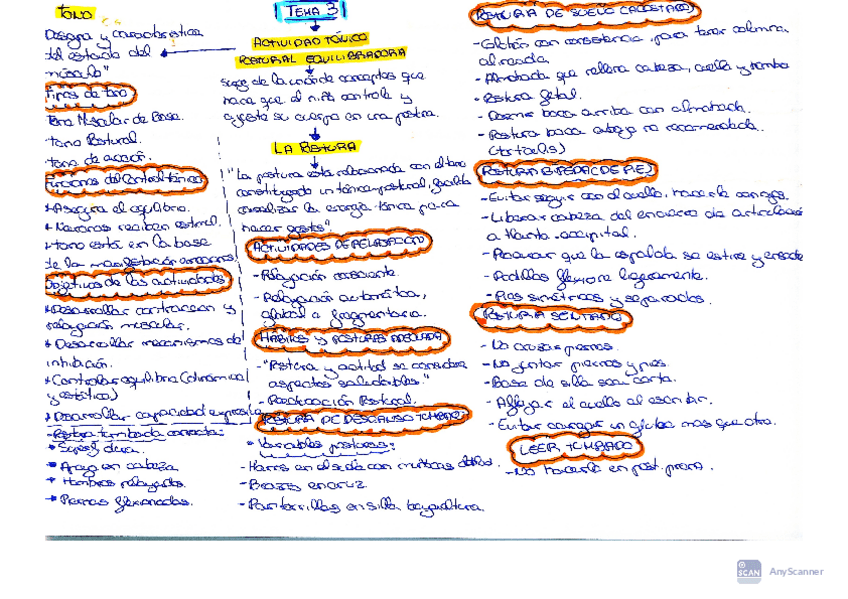 TONO
Designa y característica
del estado del
músculo"
Tipos de tono
Tono Muscular de Base.
tono Postural.
tono de acción.
Funciones del Control tónico
* Asegura el equilibrio.
* Neuronas reciban
* tono está en la base
de la manifestación
Objetivos de las actividades
* Desarrollar contracción y
relajación muscular.
* Desarrollar mecanismos de
inhibición.
* Controlar equilibrio (dinámico
y estático)
* Desarrollar capacidad expresiva
- Postura tumbada correcta:
* Superf. dura.
* Apoyo en cabeza
* Hombros relajados.
* Piernas flexionadas.
TEMA 3
ACTIVIDAD TÓNICO
POSTURAL EQUILIBRADORA
Surge de la unión de conceptos que
hace que el niño controle y
ajuste su cuerpo en una postura.
LA POSTURA
"La postura está relacionada con el tono
constituyendo un tónico-postural, facilita
canalizar la energía tónica para
hacer gestos".
ACTIVIDADES DE RELAJACIÓN
- Relajación consciente.
- Relajación automática,
global o fragmentaria.
HÁBITOS Y POSTURAS ADECUADA
- "Postura y actitud se consideran
aspectos saludables."
- Reeducación Postural.
POSTURA DE DESCANSO TUMBADO
* Variables posturas:
- Brazos en cruz.
- Pantorrillas en silla baja altura.
POSTURA DE SUEÑO (ACOSTADO)
- Colchón con consistencia, para tener columna
alineada.
- Almohada que rellena cabeza, cuello y hombro
- Postura fetal.
- Dormir boca arriba con almohada.
- Postura boca abajo no recomendada.
POSTURA BIPEDA (DE PIE)
- Evitar seguir con el cuello,
- Liberar cabeza del encierro de articulación
atlanto-occipital.
- Procurar que la espalda se estire y ensanche
- Rodillas flexione ligeramente.
- Pies simétricos y separados.
POSTURA SENTADO
- No cruzar piernas.
- No juntar piernas y pies.
- Base de silla sea corta.
- Aflojar el cuello al escribir.
- Evitar cargar un glúteo más que otro.
LEER TUMBADO
- No hacerlo en post. prono.
SCAN
AnyScanner